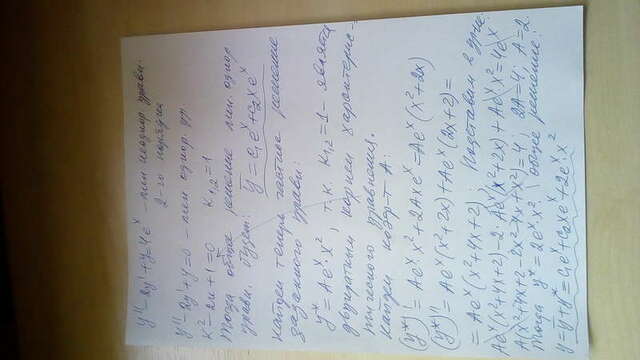 y'' - 2y' + y = 4e^x - лин неоднор уравн.
2-го порядка
y'' - 2y' + y = 0 - лин однор ур.
k² - 2k + 1 = 0 k₁,₂ = 1
Тогда общее решение лин однор
уравн. будет: ȳ = c₁e^x + c₂xe^x
Найдем теперь частное решение
заданного уравн:
y* = Ae^x·x², т.к. k₁,₂ = 1 - является
двукратным корнем характерис-
тического уравнения.
Найдем коэф-т A:
(y*)' = Ae^x x² + 2Axe^x = Ae^x(x² + 2x)
(y*)'' = Ae^x(x² + 2x) + Ae^x(2x + 2) =
= Ae^x(x² + 4x + 2); Подставим в урне
Ae^x(x² + 4x + 2) - 2·Ae^x(x² + 2x) + Ae^x x² = 4e^x
A(x² + 4x + 2 - 2x² - 4x + x²) = 4; 2A = 4; A = 2.
Тогда y* = 2e^x x², общее решение:
y = ȳ + y* = c₁e^x + c₂xe^x + 2e^x x²